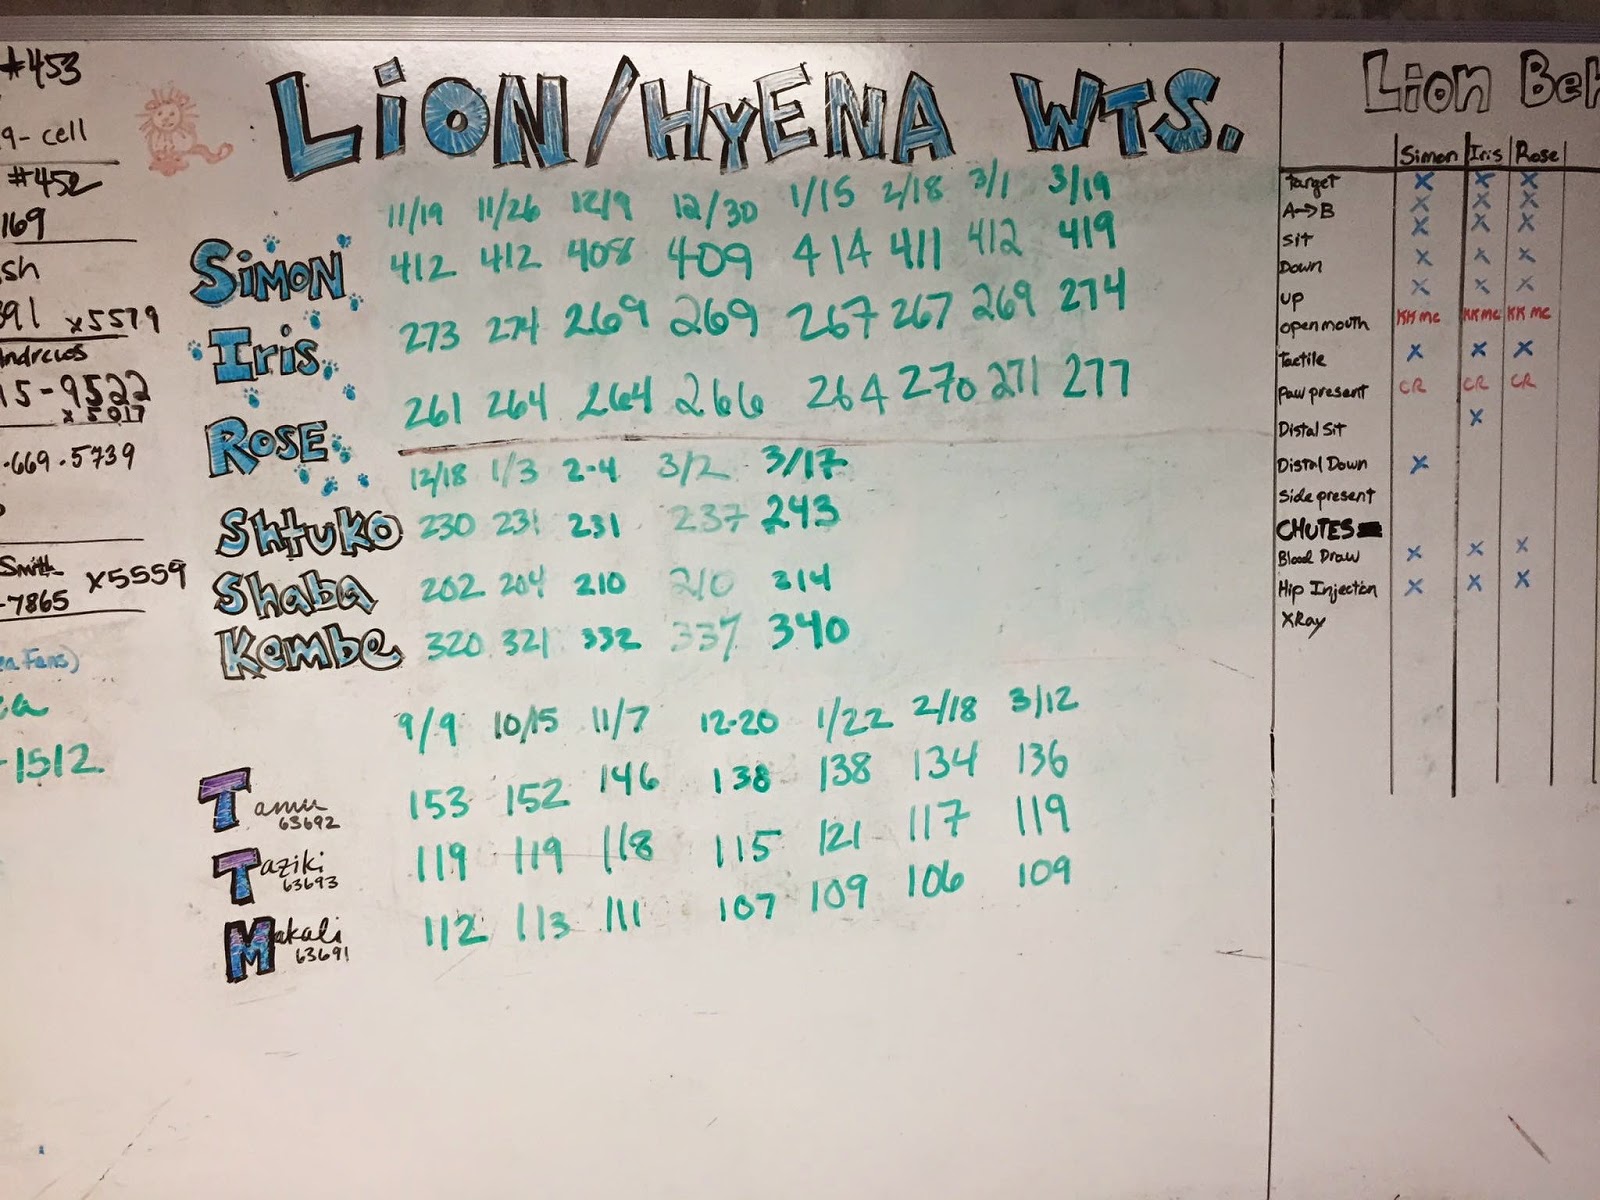 #453
9- cell
#452
169
sh
391 x5579
Andrews
15-9522
x5017
-669.5739
Smith x5559
-7865
ea Fans)
ca
-1512
LION/HYENA WTS.
11/19 11/26 12/9 12/30 1/15 2/18 3/1 3/19
SIMON 412 412 408 409 414 411 412 419
Iris 273 274 269 269 267 267 269 274
ROSE 261 264 264 266 264 270 271 277
12/18 1/3 2-4 3/2 3/17
Shtuko 230 231 231 237 243
Shaba 202 204 210 210 214
Kembe 320 321 332 337 340
9/9 10/15 11/7 12-20 1/22 2/18 3/12
Tamu 153 152 146 138 138 134 136
63692
Taziki 119 119 118 115 121 117 119
63693
Makali 112 113 111 107 109 106 109
63691
Lion Beh
Simon Iris Rose
Target X X X
A→B X X X
Sit X X X
Down X X X
up X X X
open mouth KK MC KK MC KK MC
Tactile X X X
Paw present CR CR CR
Distal Sit X
Distal Down X
Side present
CHUTES
Blood Draw X X X
Hip Injection X X X
XRay